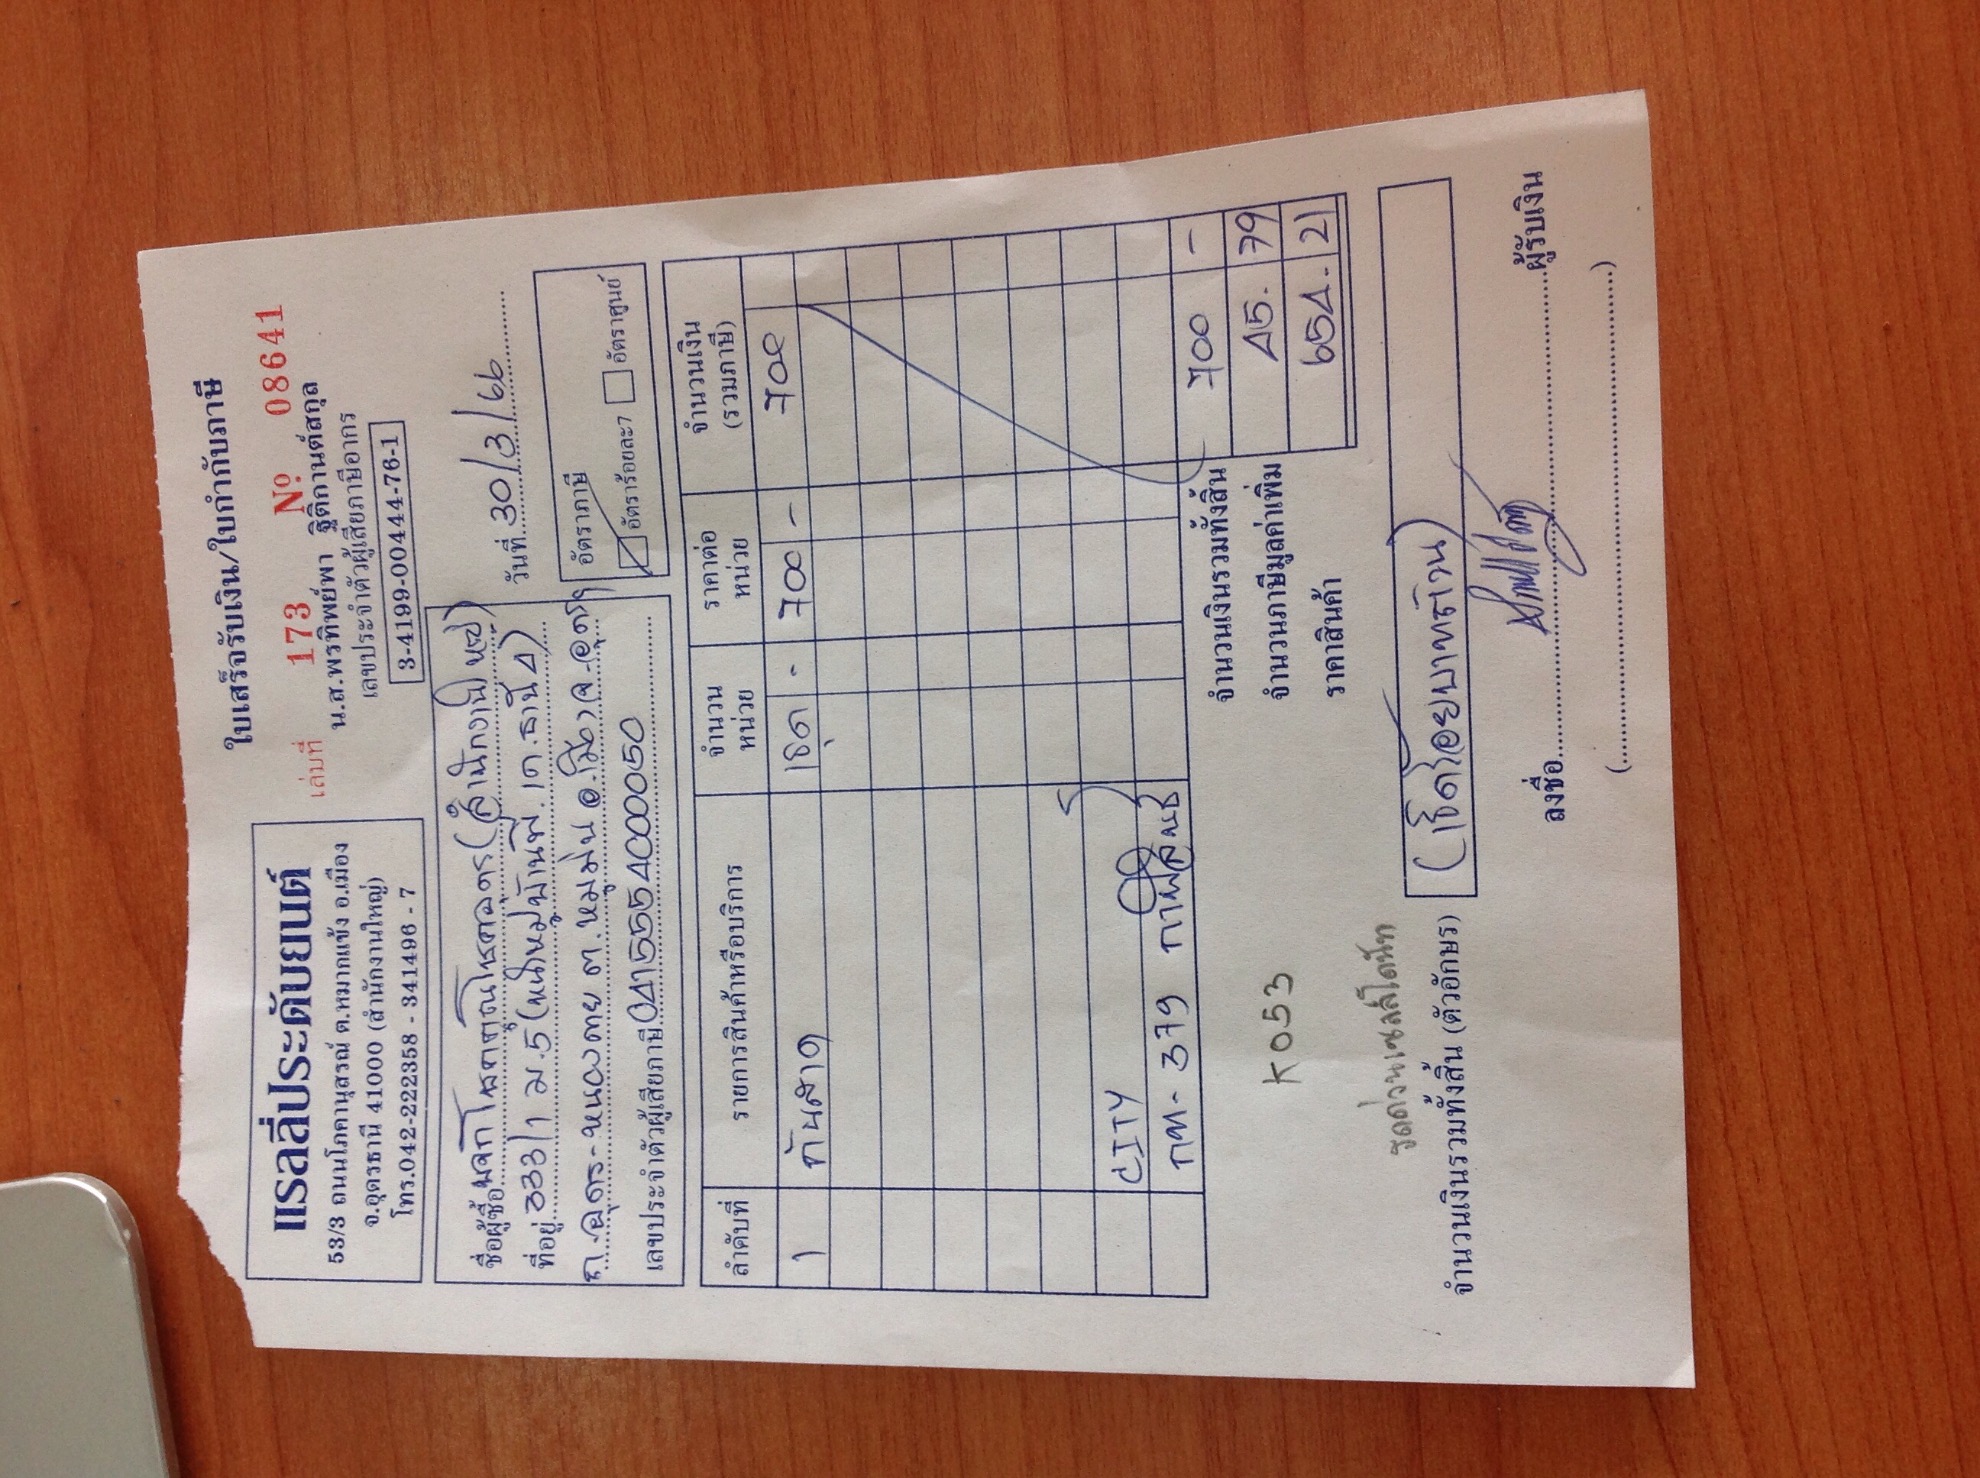 ใบเสร็จรับเงิน/ใบกำกับภาษี
แรลลี่ประดับยนต์
53/3 ถนนโภคานุสรณ์ ต.หมากแข้ง อ.เมือง
จ.อุดรธานี 41000 (สำนักงานใหญ่)
โทร.042-222358 - 341496 - 7
เล่มที่ 173 Nº 08641
น.ส.พรทิพย์พา ฐิติกานต์สกุล
เลขประจำตัวผู้เสียภาษีอากร
3-4199-00444-76-1
ชื่อผู้ซื้อ (สำนักงานใหญ่)
วันที่ 30/3/66
ที่อยู่ 333/1 ม.5 (หน้าหมู่บ้านพี.เค.ธานี 4)
ถ.อุดร-หนองคาย ต.หมูม่น อ.เมือง จ.อุดรฯ
เลขประจำตัวผู้เสียภาษี 0415554000050
อัตราภาษี
อัตราร้อยละ7 อัตราศูนย์
ลำดับที่ รายการสินค้าหรือบริการ จำนวนหน่วย ราคาต่อหน่วย จำนวนเงิน (รวมภาษี)
1 กันสาด 1ชุด - 700 - 700
CITY
กท- 379 กาฬสินธุ์
จำนวนเงินรวมทั้งสิ้น 700 -
จำนวนภาษีมูลค่าเพิ่ม 45. 79
ราคาสินค้า 654. 21
K053
จำนวนเงินรวมทั้งสิ้น (ตัวอักษร) (เจ็ดร้อยบาทถ้วน)
ลงชื่อ ผู้รับเงิน
( )